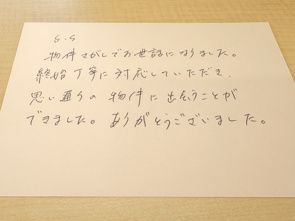 S.S
物件さがしでお世話になりました。
終始丁寧に対応していただき、
思い通りの物件に出会うことが
できました。ありがとうございました。